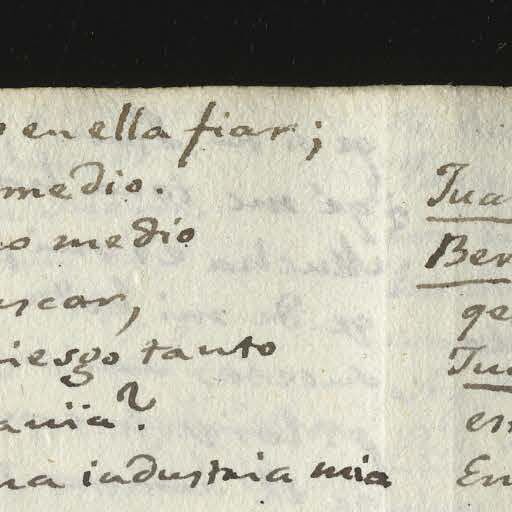 en ella fiar;
medio.
medio
scar,
iesgo tanto
ania?
na industria mia
Jua
Ber
qe
Jua
es
En